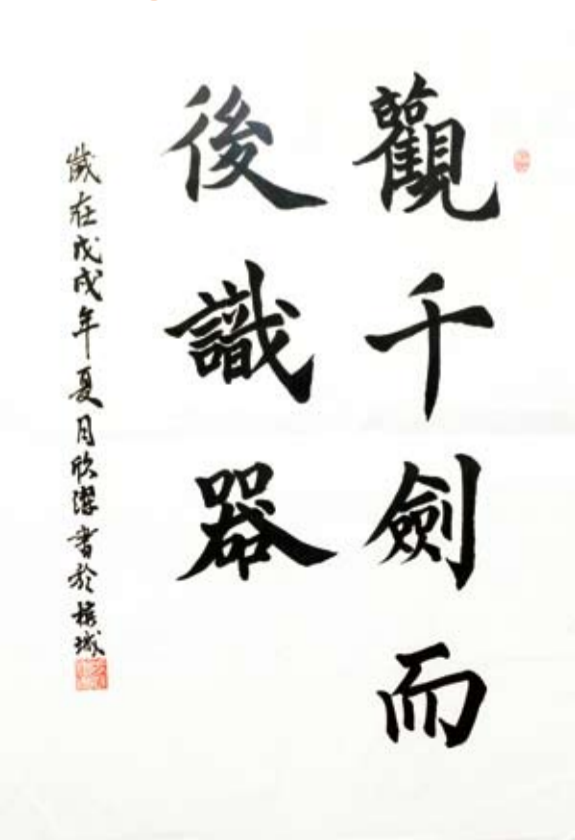 觀千劍而
後識器
歲在戊戌年夏月欣潔書於榕城